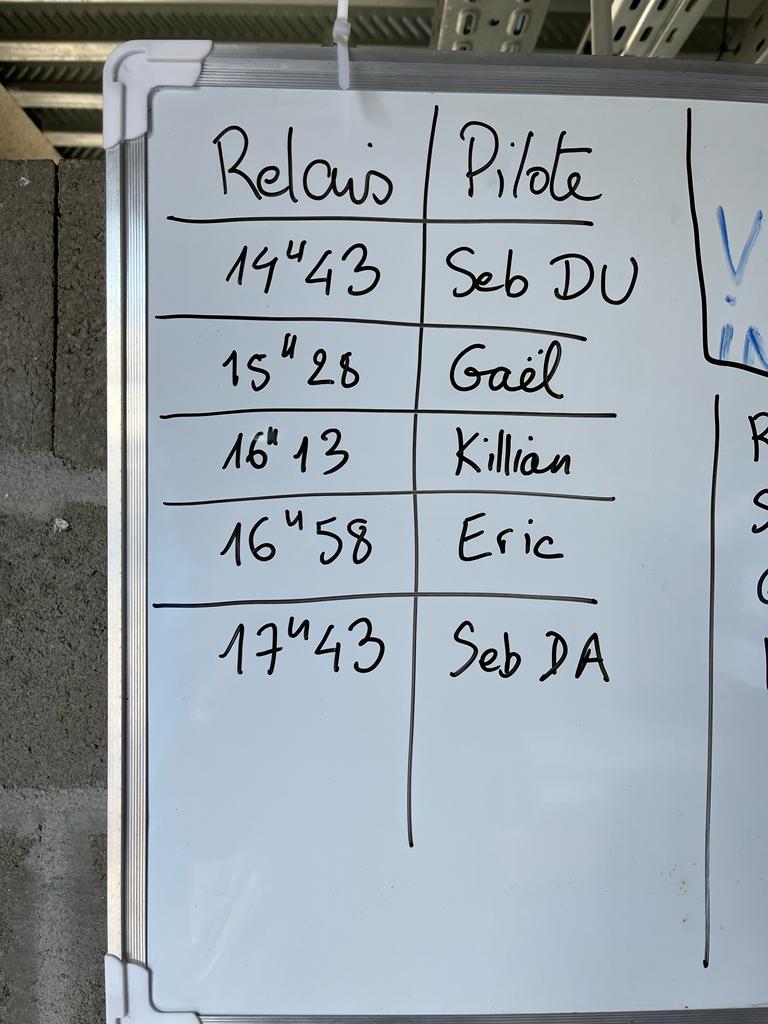 Relais Pilote
14H43 Seb DU
15H28 Gaël
16H13 Killian
16H58 Eric
17H43 Seb DA